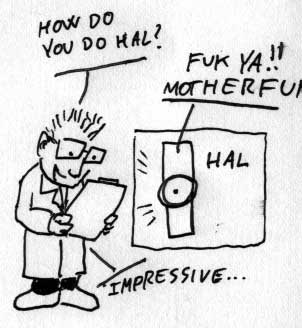 HOW DO
YOU DO HAL?
FUK YA!!
MOTHERFUK
HAL
IMPRESSIVE...